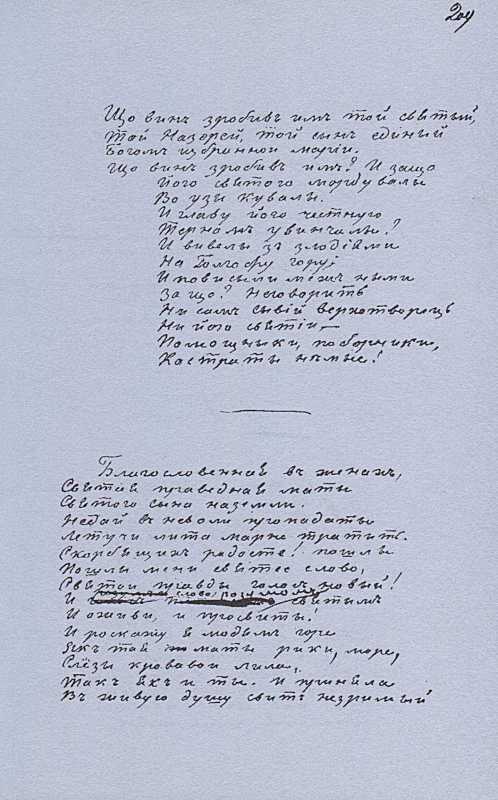 209
Що винъ зробивъ имъ той святый,
Той Назорей, той сынъ единый
Богомъ избранной Маріи.
Що винъ зробивъ имъ? И защо
Його святого мордувалы
Во узы кувалы.
И главу його честную
Терномъ увинчалы?
И вивелы зъ злодіями
На Голгофу гору;
И повисылы межъ ными
За що? Неговорить
Ни самъ сывій верхотворець
Ни його святіи—
Помощныки, поборники,
Кастраты нѣмые!
Благословенная въ женахъ,
Святая праведная маты
Святого сына на земли.
Недай въ неволи пропадаты
Летучи лита марне тратить.
Скорбящихъ радосте! пошлы
Пошлы мени святее слово,
Святои правды голосъ новый!
И слово розумомъ святымъ
И оживи, и просвиты!
И роскажу я людямъ горе
Якъ тая маты рики, море,
Слёзы кровавои лила,
Такъ якъ и ты. И приняла
Въ живую душу свитъ незримый